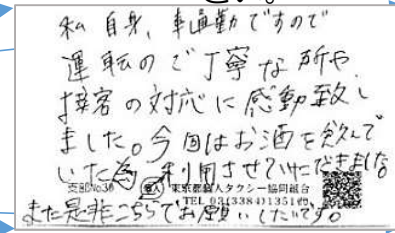 さい。
私自身、車通勤ですので
運転のご丁寧な所や、
接客の対応に感動致し
ました。今回はお酒を飲んで
いた為、利用させていただきました
支部No.30 個人 東京都個人タクシー協同組合
TEL 03(3384)1351㈹
また是非こちらでお願いしたいです。